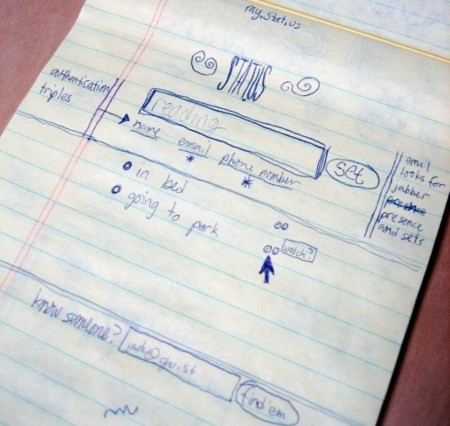 my.stat.us
STATUS
authentication
triples
reading
name email phone number
set
in bed
going to park
watch?
email
looks for
jabber
presence
presence
and sets
know someone?
find'em